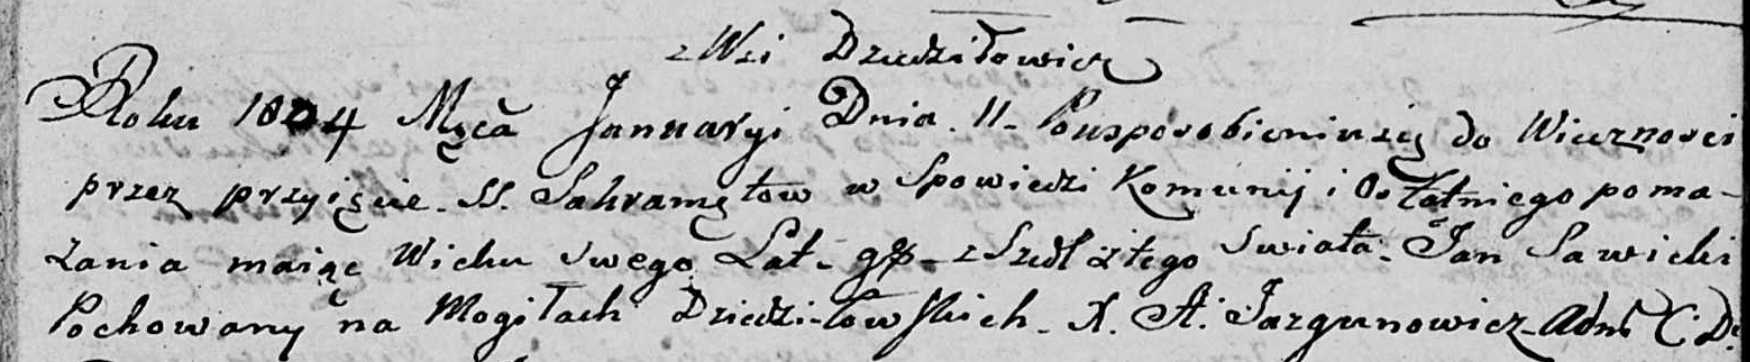 z Wsi Dziedziłowicz
Roku 1804 Mca Januaryi Dnia 11. Pousposobieniu się do Wieczności
przez przyięcie SS. Sakramętow w Spowiedzi Komunij i Ostatniego poma-
zania maiąc Wieku swego Lat z tego Swiata Jan Sawicki
Pochowany na Mogiłach Dziedziłowskich. X. A. Jazgunowicz Adm C. D.